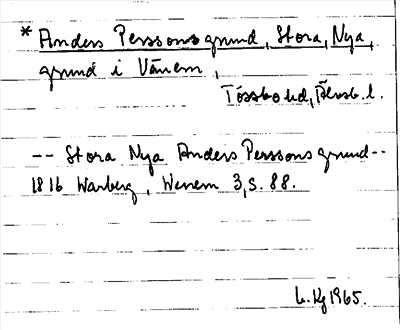 * Anders Perssons grund, Stora, Nya,
grund i Vänern,
Tössbo hd, Älvsb. l.
-- Stora Nya Anders Perssons grund--
1816 Warberg, Wenern 3, s. 88.
1965.